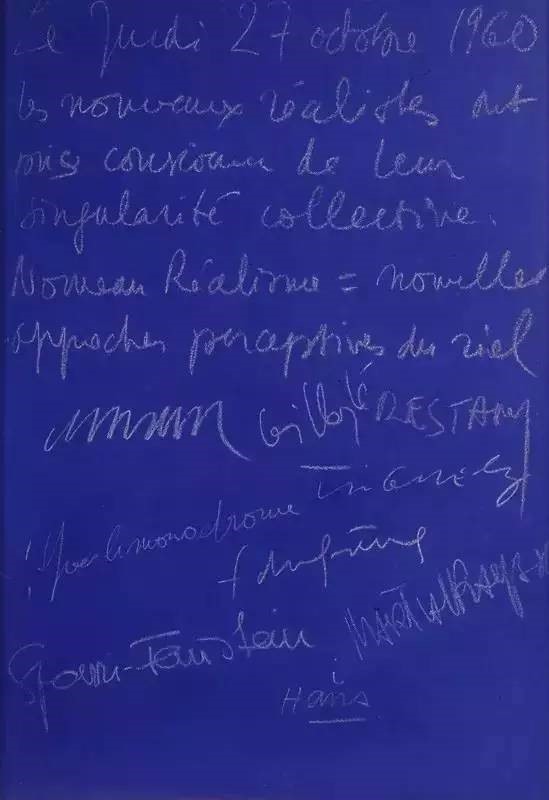 Le Jeudi 27 octobre 1960
les nouveaux réalistes ont
pris conscience de leur
singularité collective.
Nouveau Réalisme = nouvelles
approches perceptives du réel
RESTANY
Tinguely
Yves le monochrome
f dufrêne
MARTIAL RAYSSE
Hains